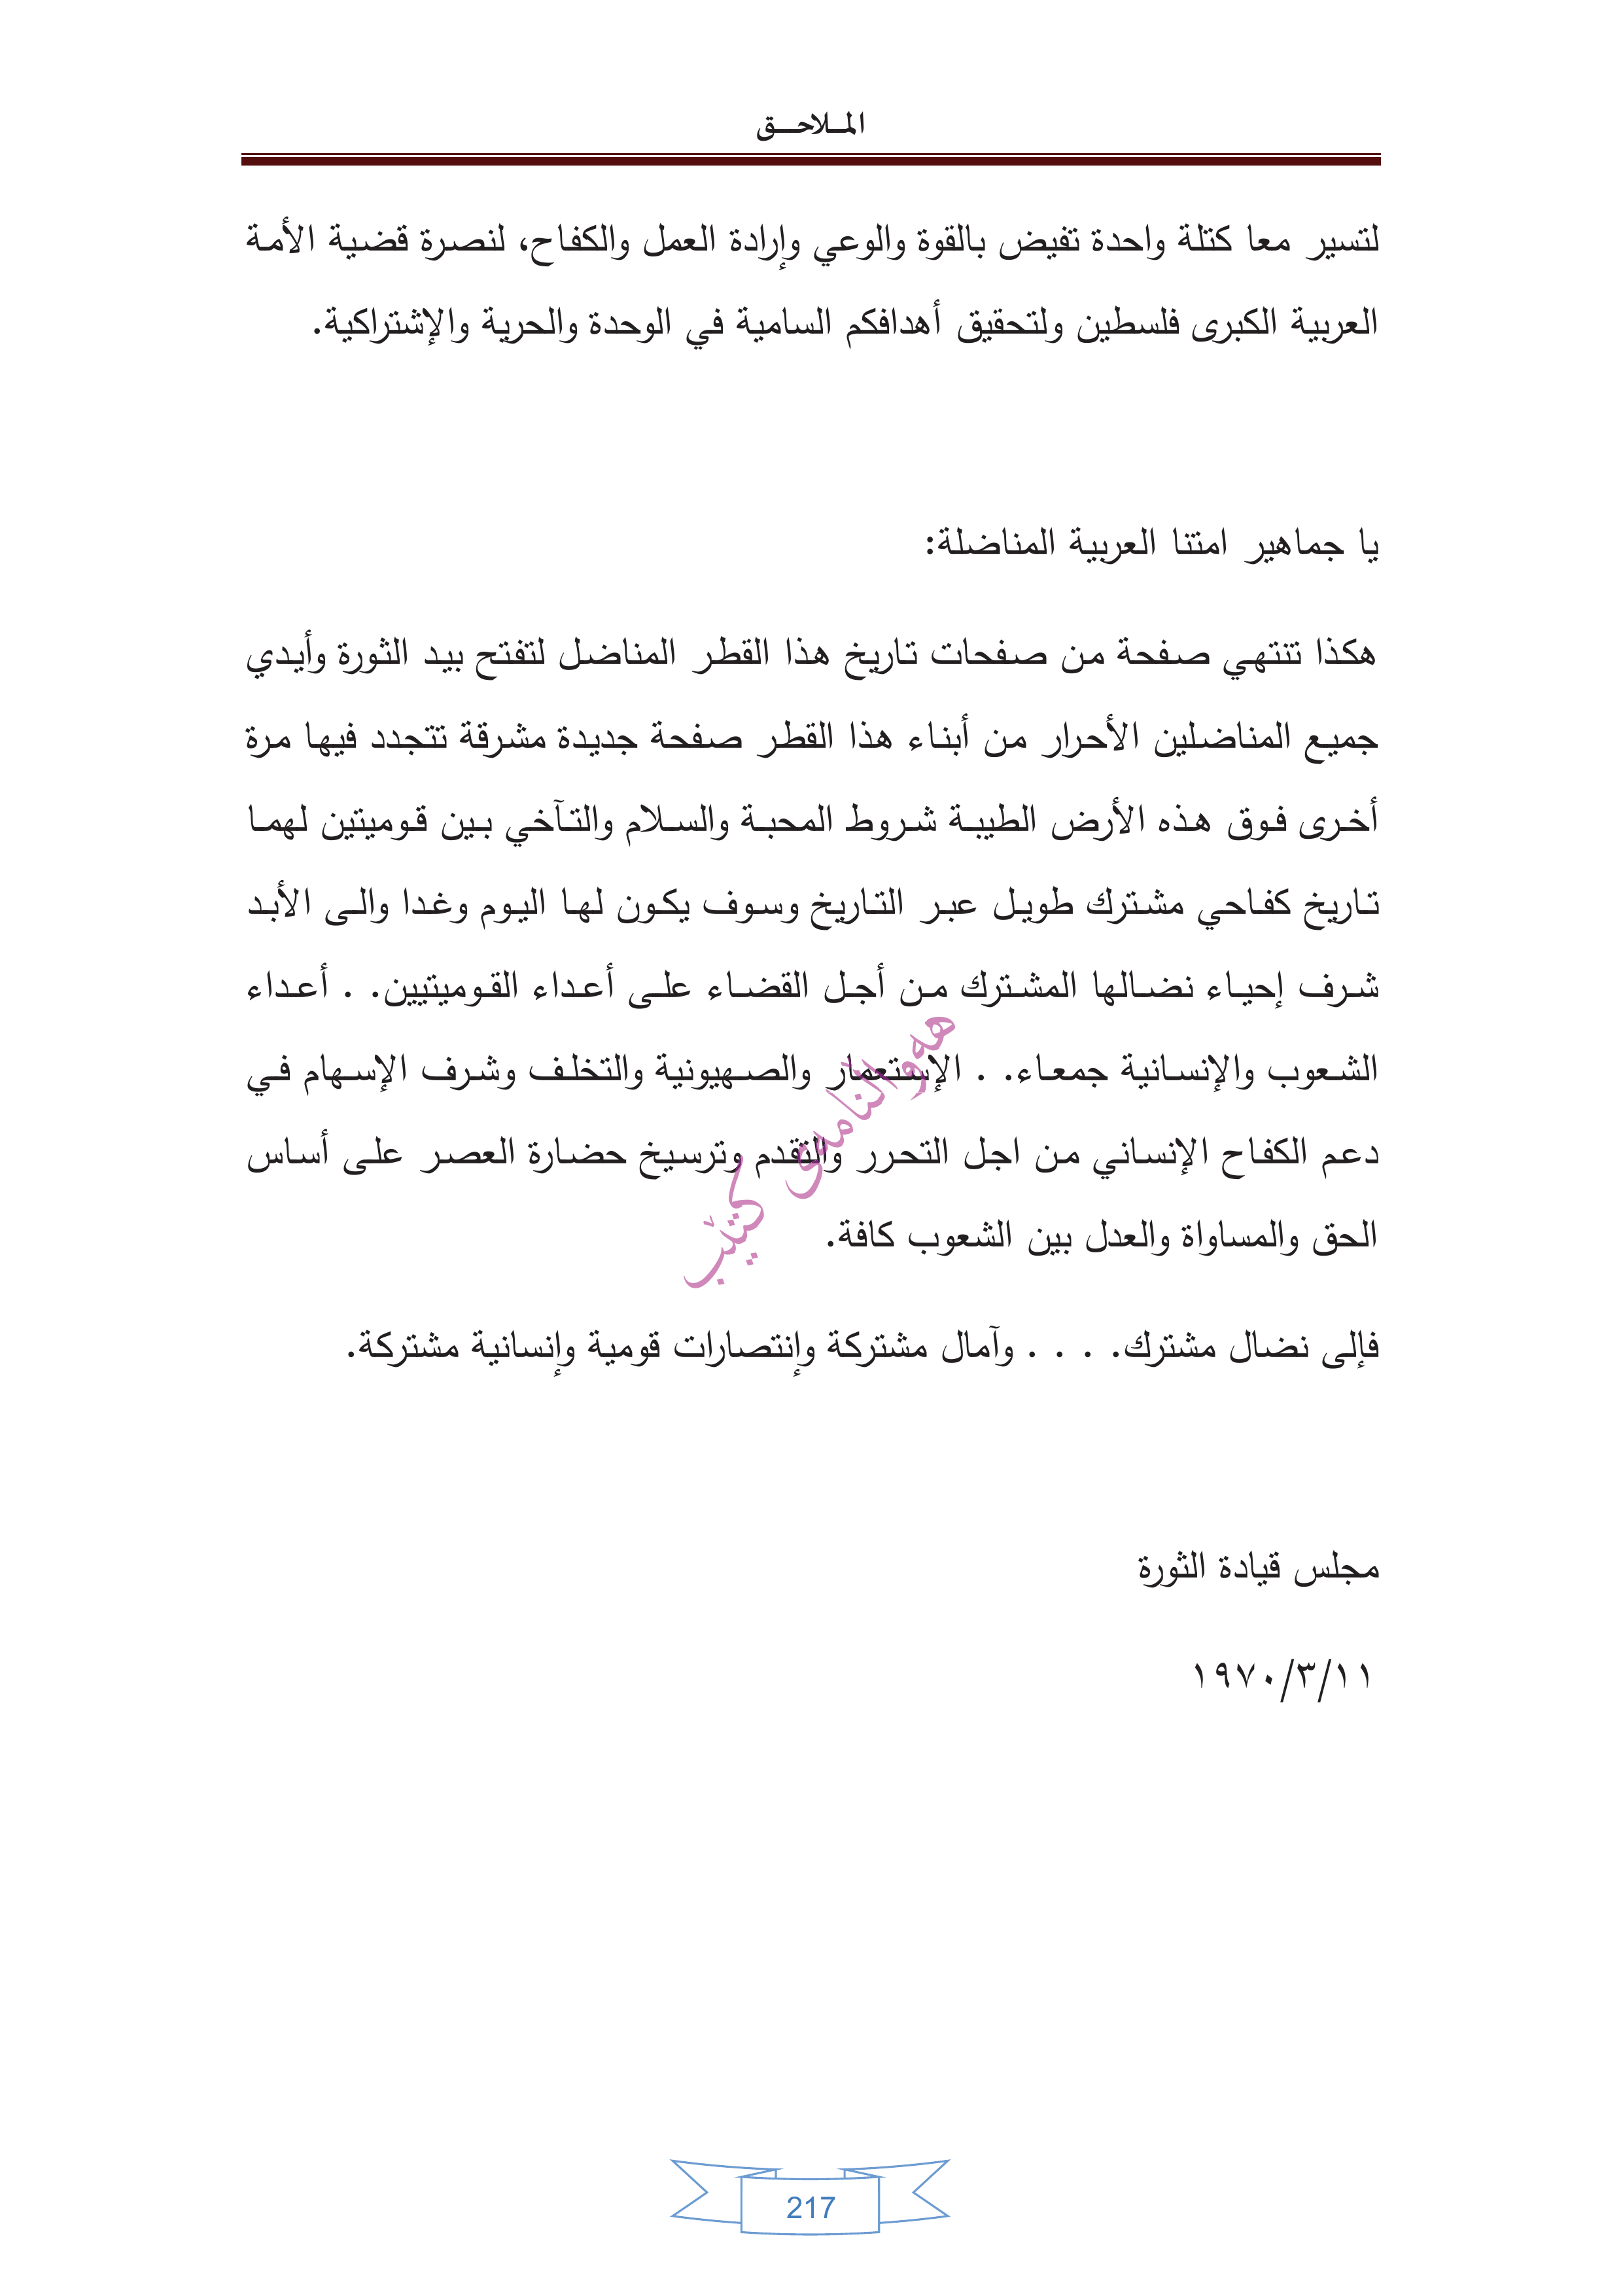 الملاحق
لتسير معا كتلة واحدة تفيض بالقوة والوعي وإرادة العمل والكفاح، لنصرة قضية الأمة
العربية الكبرى فلسطين ولتحقيق أهدافكم السامية في الوحدة والحرية والإشتراكية.
يا جماهير امتنا العربية المناضلة:
هكذا تنتهي صفحة من صفحات تاريخ هذا القطر المناضل لتفتح بيد الثورة وأيدي
جميع المناضلين الأحرار من أبناء هذا القطر صفحة جديدة مشرقة تتجدد فيها مرة
أخرى فوق هذه الأرض الطيبة شروط المحبة والسلام والتآخي بين قوميتين لهما
تاريخ كفاحي مشترك طويل عبر التاريخ وسوف يكون لها اليوم وغدا والى الأبد
شرف إحياء نضالها المشترك من أجل القضاء على أعداء القوميتيين. . أعداء
الشعوب والإنسانية جمعاء. . الإستعمار والصهيونية والتخلف وشرف الإسهام في
دعم الكفاح الإنساني من اجل التحرر والتقدم وترسيخ حضارة العصر على أساس
الحق والمساواة والعدل بين الشعوب كافة.
فإلى نضال مشترك. . . . وآمال مشتركة وإنتصارات قومية وإنسانية مشتركة.
مجلس قيادة الثورة
١٩٧٠/٣/١١
هەواڵنامەی کتێب
217